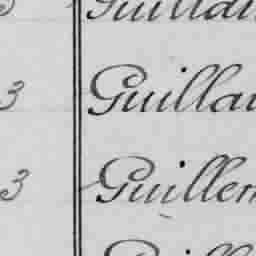 Guillau
3 Guillau
3 Guillem